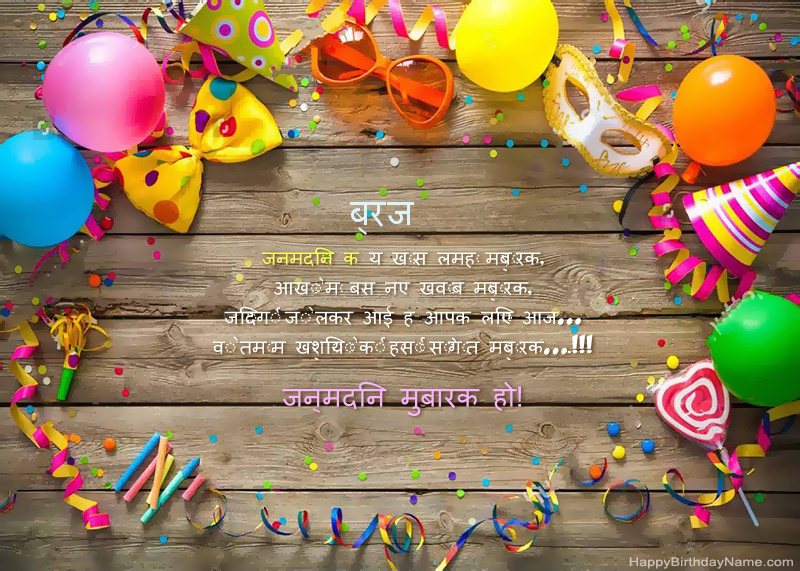 ब्रज
जनमदिन क य खास लमह मबारक,
आखों म बस नए खवाब मबारक,
जिंदगी जो लेकर आई ह आपक लिए आज...
वो तमाम खुशियों की हसीं सौगात मबारक...!!!
जन्मदिन मुबारक हो!
HappyBirthdayName.com